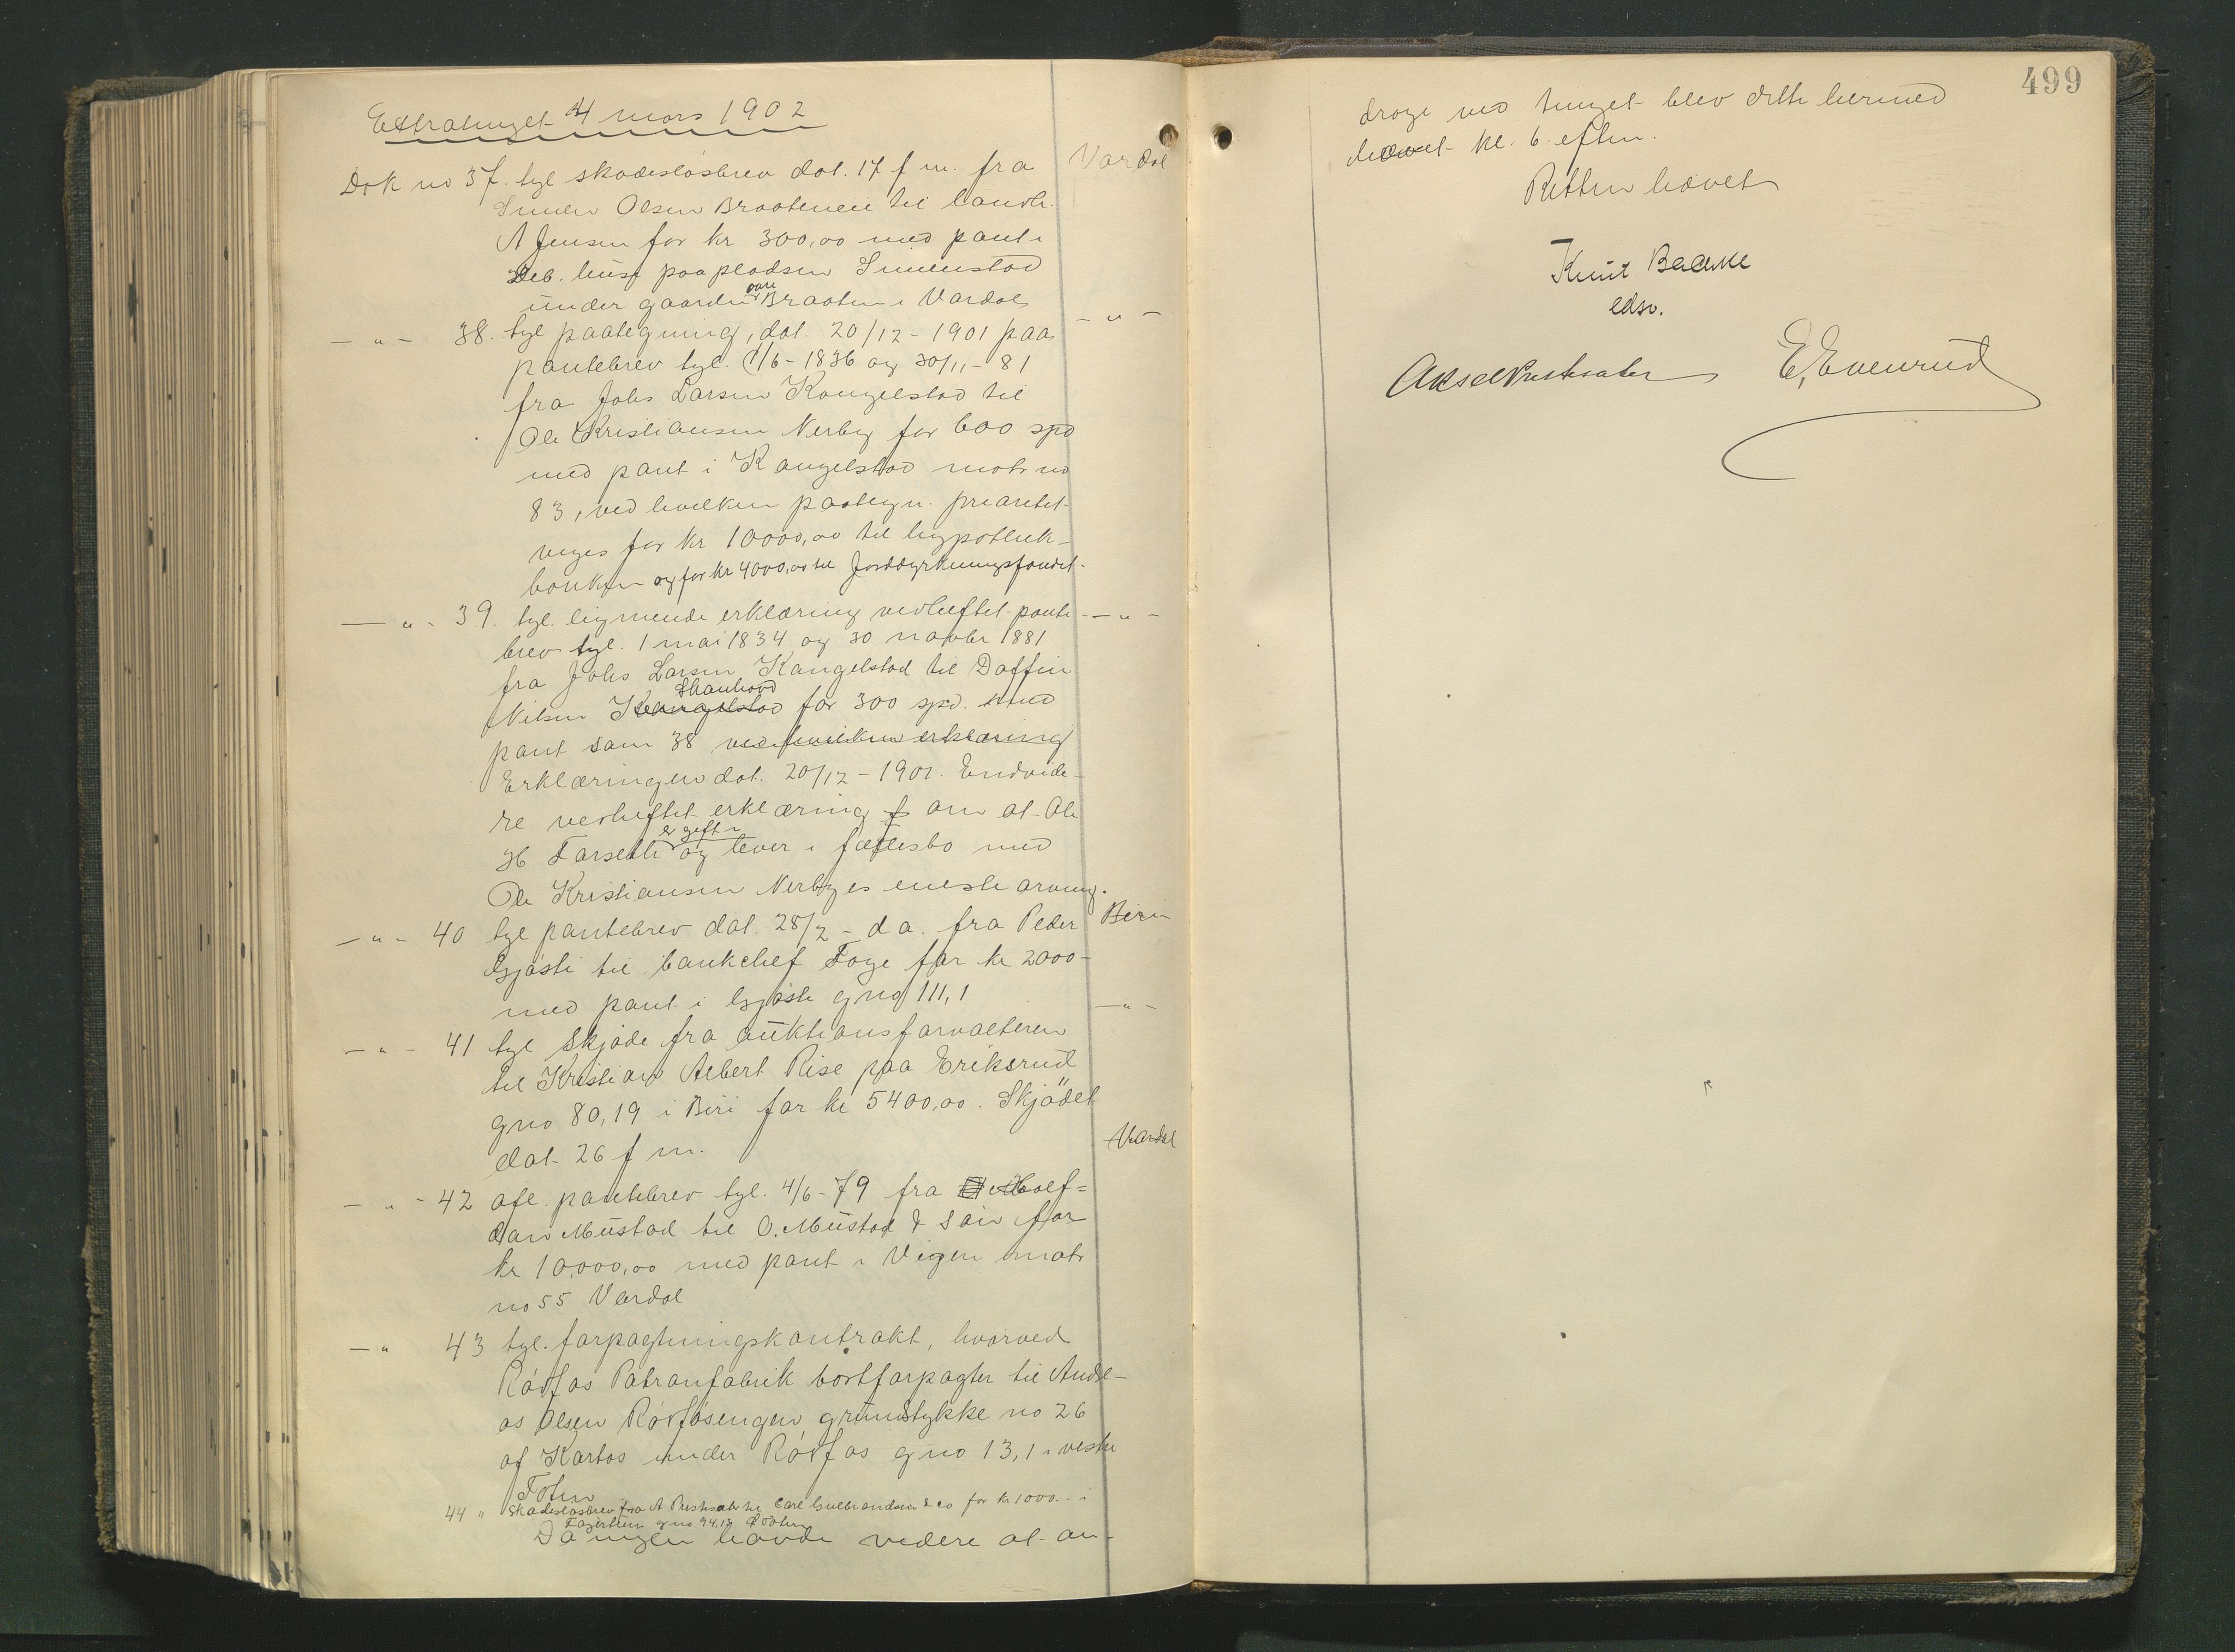 Extratinget 4 mars 1902
Dok no 37. tgl skadeslösbrev dat. 17 f m. fra Vardal
Simen Olsen Braatenee til landh.
A Jensen for kr 300,00 med pant i
Deb. huse paa pladsen Simenstad
under gaarden Braaten i Vardal
— " — 38. tgl paategning, dat 20/12 - 1901 paa — " —
pantebrev tgl. 1/6 - 1836 og 30/11 - 81
fra Johs Larsen Kangelstad til
Ole Kristiansen Nerby for 600 spd
med pant i Kangelstad matr no
83, ved hvilken paategn. prioritet
viges for kr 10000,00 til hypothek-
banken og for kr 4000,00 til Jorddyrkningsfondet.
— " — 39. tgl. lignende erklæring vedheftet pante- — " —
brev tgl. 1 mai 1834 og 30 novbr 1881
fra Johs Larsen Kangelstad til Daffin
Nilsen Kangelstad Skanhovd for 300 spd. med
pant som 38 ved hvilken erklæring
Erklæringen dat. 20/12 - 1901. Endvide-
re vedheftet erklæring f om at Ole
H Farseth er gift i og lever i fællesbo med
Ole Kristiansen Nerbyes eneste arving.
— " — 40 tgl pantebrev dat. 28/2 - d a. fra Peder Biri
Gjösti til bankchef Foge for kr 2000-
med pant i Gjösti gno 111,1
— " — 41 tgl skjöde fra auktionsforvalteren — " —
til Kristian Albert Rise paa Eriksrud
gno 80,19 i Biri for kr 5400,00. Skjödet
dat 26 f m.
— " — 42 afl. pantebrev tgl. 4/6 - 79 fra Half= Vardal
dan Mustad til O. Mustad & Sön for
kr 10,000,00 med pant i Vigen matr
no 55 Vardal
— " 43 tgl. forpagtningskontrakt, hvorved
Raufos Patronfabrik bortforpagter til Andre-
as Olsen Raufosengen grundstykke no 26
af Kartos under Raufos gno 13,1 i vestre
Toten
44 " Skadeslösbrev fra A Prestsæter til Carl Gulbrandsen & co for kr 1000.- i
Fagerlien gno 94,12 Ø Toten
Da ingen havde videre at an-
499
drage ved tinget blev dette hermed
hævet kl. 6 eftm.
Retten hævet
Knut Baeivke
edsv.
Aksel Prestsæter E. Evenrud